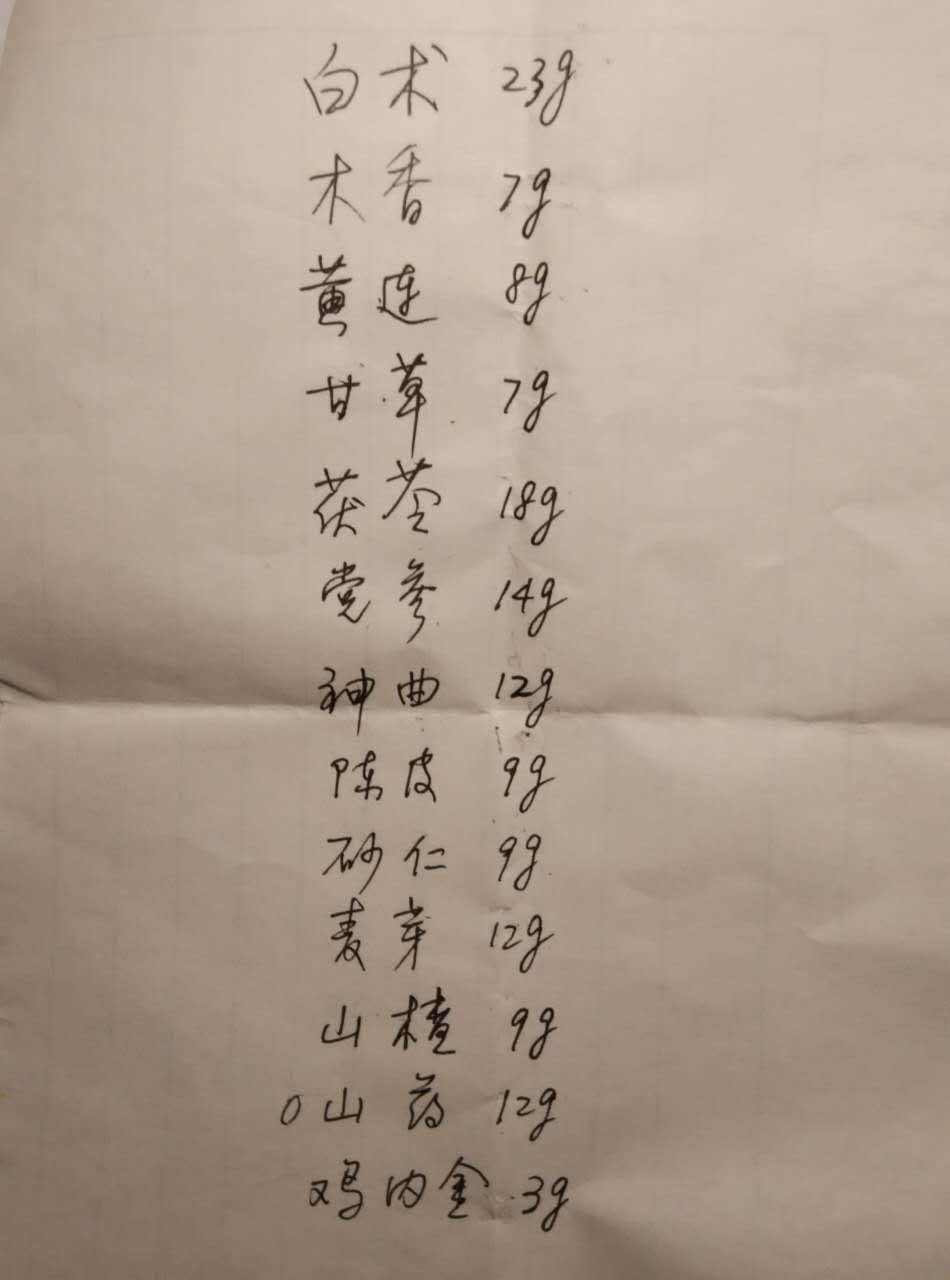 白术 23g
木香 7g
黄连 8g
甘草 7g
茯苓 18g
党参 14g
神曲 12g
陈皮 9g
砂仁 9g
麦芽 12g
山楂 9g
○山药 12g
鸡内金 3g